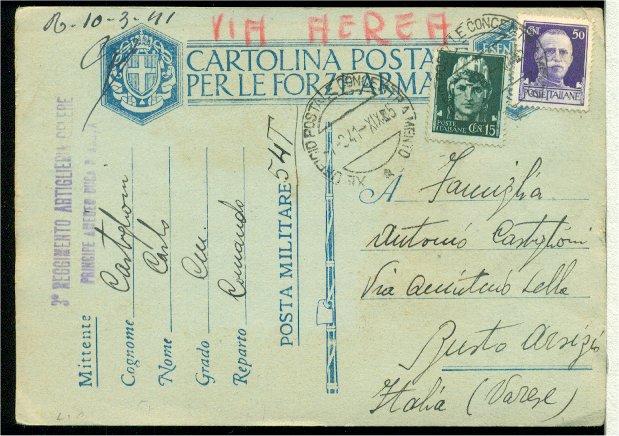 R. 10-3-41
VIA AEREA
CARTOLINA POSTA
PER LE FORZE ARMA
ESEN
LE CONCE
CENT 50
POSTE ITALIANE
POSTE ITALIANE CEN. 15
UFFICIO POSTALE CONCENTRAMENTO
.2.41-XIX 
3° REGGIMENTO ARTIGLIERIA CELERE
PRINCIPE AMEDEO DUCA D'AOSTA
Mittente
Cognome Castiglioni
Nome Carlo
Grado
Reparto Comando
POSTA MILITARE 54T
A Famiglia
Antonio Castiglioni
Via
Busto Arsizio
Italia (Varese)